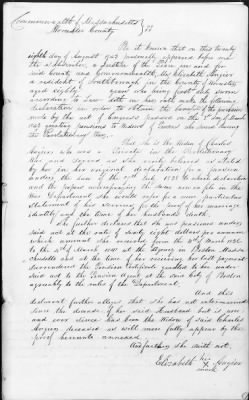 Commonwealth of Massachusetts
Worcester County } SS
Be it known that on this twenty
eighth day of August 1843 personally appeared before me
the subscriber, a Justice of the Peace in and for
said County and Commonwealth, Mrs Elizabeth Angier
a resident of Southborough in the County of Worcester
aged eighty years who being first duly sworn
according to law doth on her oath make the following
declaration in order to obtain the benefits of the provision
made by the act of Congress passed on the 3d day of March
1843 granting pensions to Widows of persons who served during
the Revolutionary War,
That she is the Widow of Charles
Angier who was a Private in the Revolutionary
War and served as she verily believes as stated
by her in her original declaration for a pension
under the law of the 7th July 1838 to which declaration
and the papers accompanying the same now on file in the
War Department she would refer for a more particular
Statement of her marriage for the proof of her marriage
identity and the time of her husband's death.
She further declares that she was pensioned under
said act at the rate of eighty dollars per annum
which annuity she received from the 4th of March 1836
to the 4th of March 1841 at the Agency in Boston Massa
chusetts and at the time of her receiving her last payment
surrendered the Pension Certificate granted to her under
said act to the Pension Agent at the said City of Boston
agreeably to the rules of the Department.
And this
declarant further alleges that she has not intermarried
since the demise of her said Husband but is now
and ever since has been the Widow of said Charles
Angier deceased as will more fully appear by the
proof hereunto annexed.
And further she saith not.
Elizabeth X Angier
mark